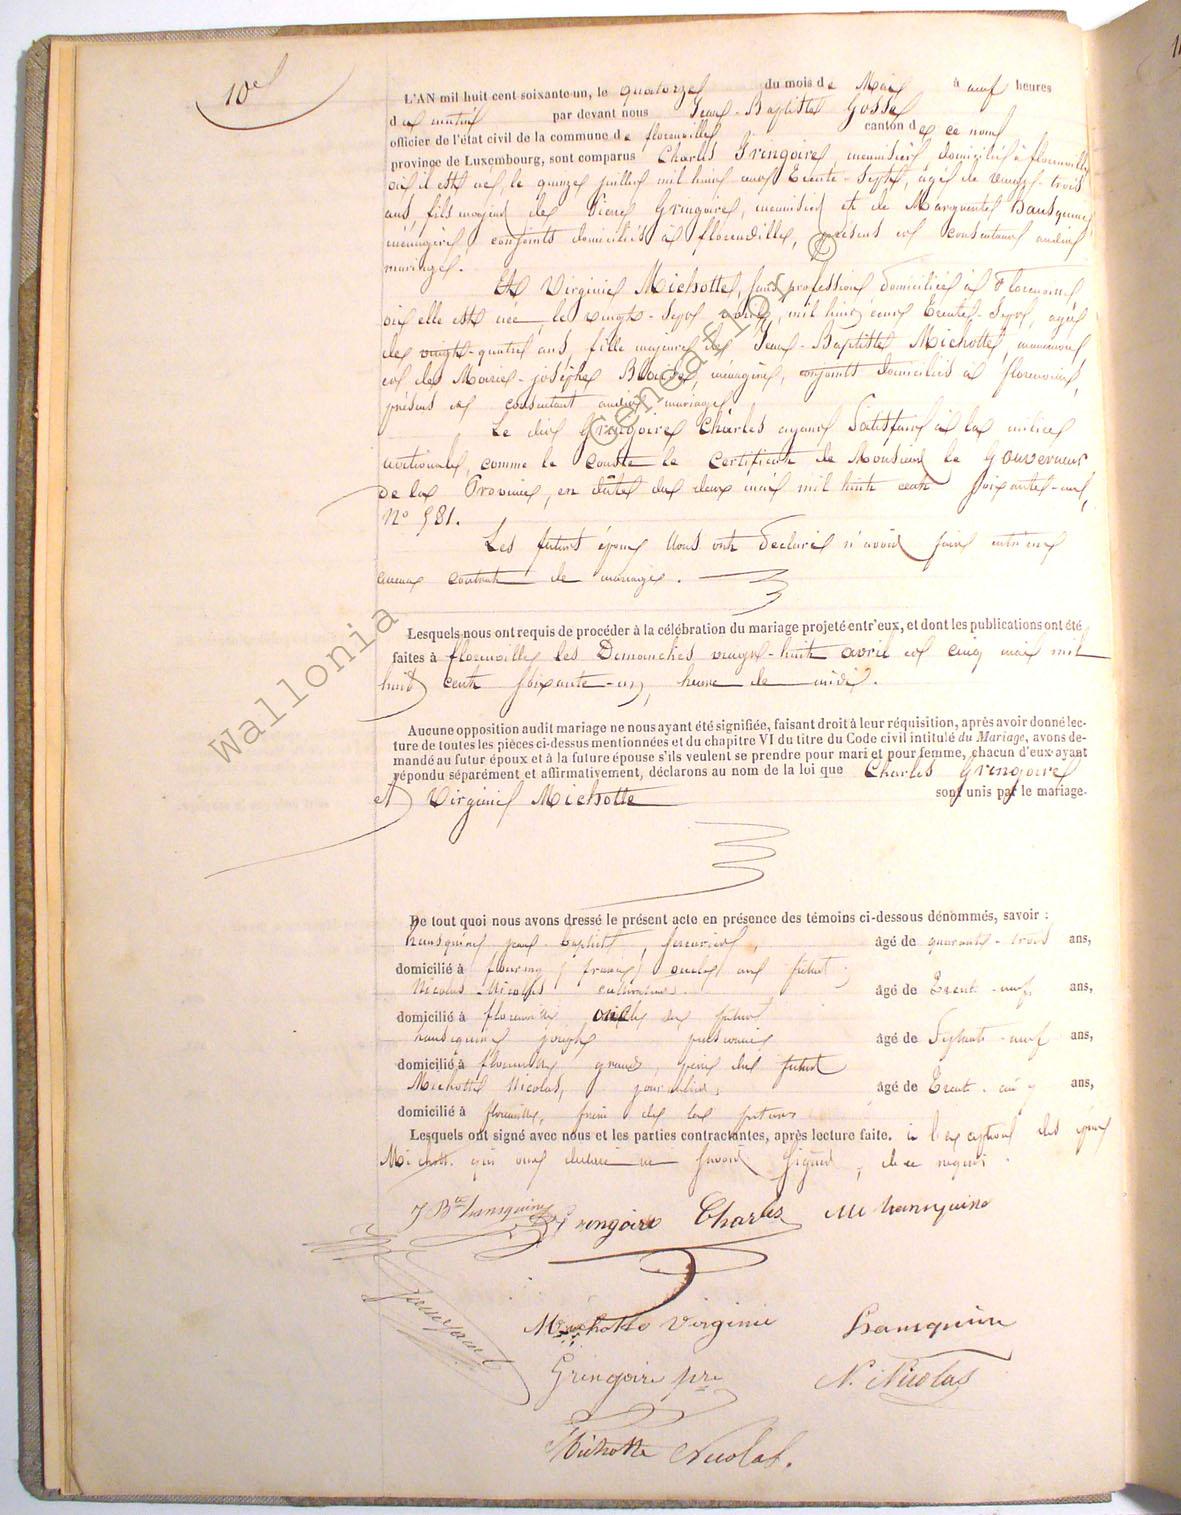 10e
L'AN mil huit cent soixante-un, le quatorze du mois de Mai à neuf heures
du matin par devant nous Jean-Baptiste Gosse
officier de l'état civil de la commune de florenville canton de ce nom
province de Luxembourg, sont comparus Charles Gringoire, menuisier, domicilié à florenville
où il est né, le quinze juillet mil huit cent Trente-Sept, âgé de vingt-trois
ans, fils majeur de Pierre Gringoire, menuisier et de Marguerite hansquine,
ménagère, conjoints domiciliés à florenville, présens et consentans audit
mariage.
Et Virginie Michotte, sans profession domiciliée à Florenville,
où elle est née, le vingt-Sept avril, mil huit cent Trente-Sept, agée
de vingt-quatre ans, fille majeure de Jean-Baptiste Michotte,
et de Marie-josèphe ménagère, conjoints domiciliés à florenville,
présens et consentant audit mariage
Le dit Gringoire Charles ayant Satisfait à la milice
nationale, comme le conste le certificat de Monsieur le Gouverneur
de la Province, en date du deux mai mil huit cent soixante-un,
N° 981.
Les futurs époux Nous ont déclaré n'avoir fait entr'eux
aucun contrat de mariage.
Lesquels nous ont requis de procéder à la célébration du mariage projeté entr'eux, et dont les publications ont été
faites à florenville les Dimanches vingt-huit avril et cinq mai mil
huit cent soixante-un, heure de midi.
Aucune opposition audit mariage ne nous ayant été signifiée, faisant droit à leur réquisition, après avoir donné lec-
ture de toutes les pièces ci-dessus mentionnées et du chapitre VI du titre du Code civil intitulé du Mariage, avons de-
mandé au futur époux et à la future épouse s'ils veulent se prendre pour mari et pour femme, chacun d'eux ayant
répondu séparément et affirmativement, déclarons au nom de la loi que Charles Gringoire
et Virginie Michotte sont unis par le mariage.
De tout quoi nous avons dressé le présent acte en présence des témoins ci-dessous dénommés, savoir :
hansquine jean-baptiste, âgé de quarante-trois ans,
domicilié à (france) oncle au futur;
Nicolas Nicolas cultivateur âgé de Trente-neuf ans,
domicilié à florenville oncle du futur
hansquine joseph âgé de Septante-neuf ans,
domicilié à florenville grand père du futur
Michotte Nicolas, journalier, âgé de Trente-cinq ans,
domicilié à florenville, frère de la future
Lesquels ont signé avec nous et les parties contractantes, après lecture faite. à l'exception des
Michotte qui ont déclaré ne savoir signer, de ce requis.
J Bte hansquine
Gringoire Charles
M hansquine
Michotte Virginie
hansquine
Gringoire pre
N. Nicolas
Michotte Nicolas.
Wallonia Geneaflor ©